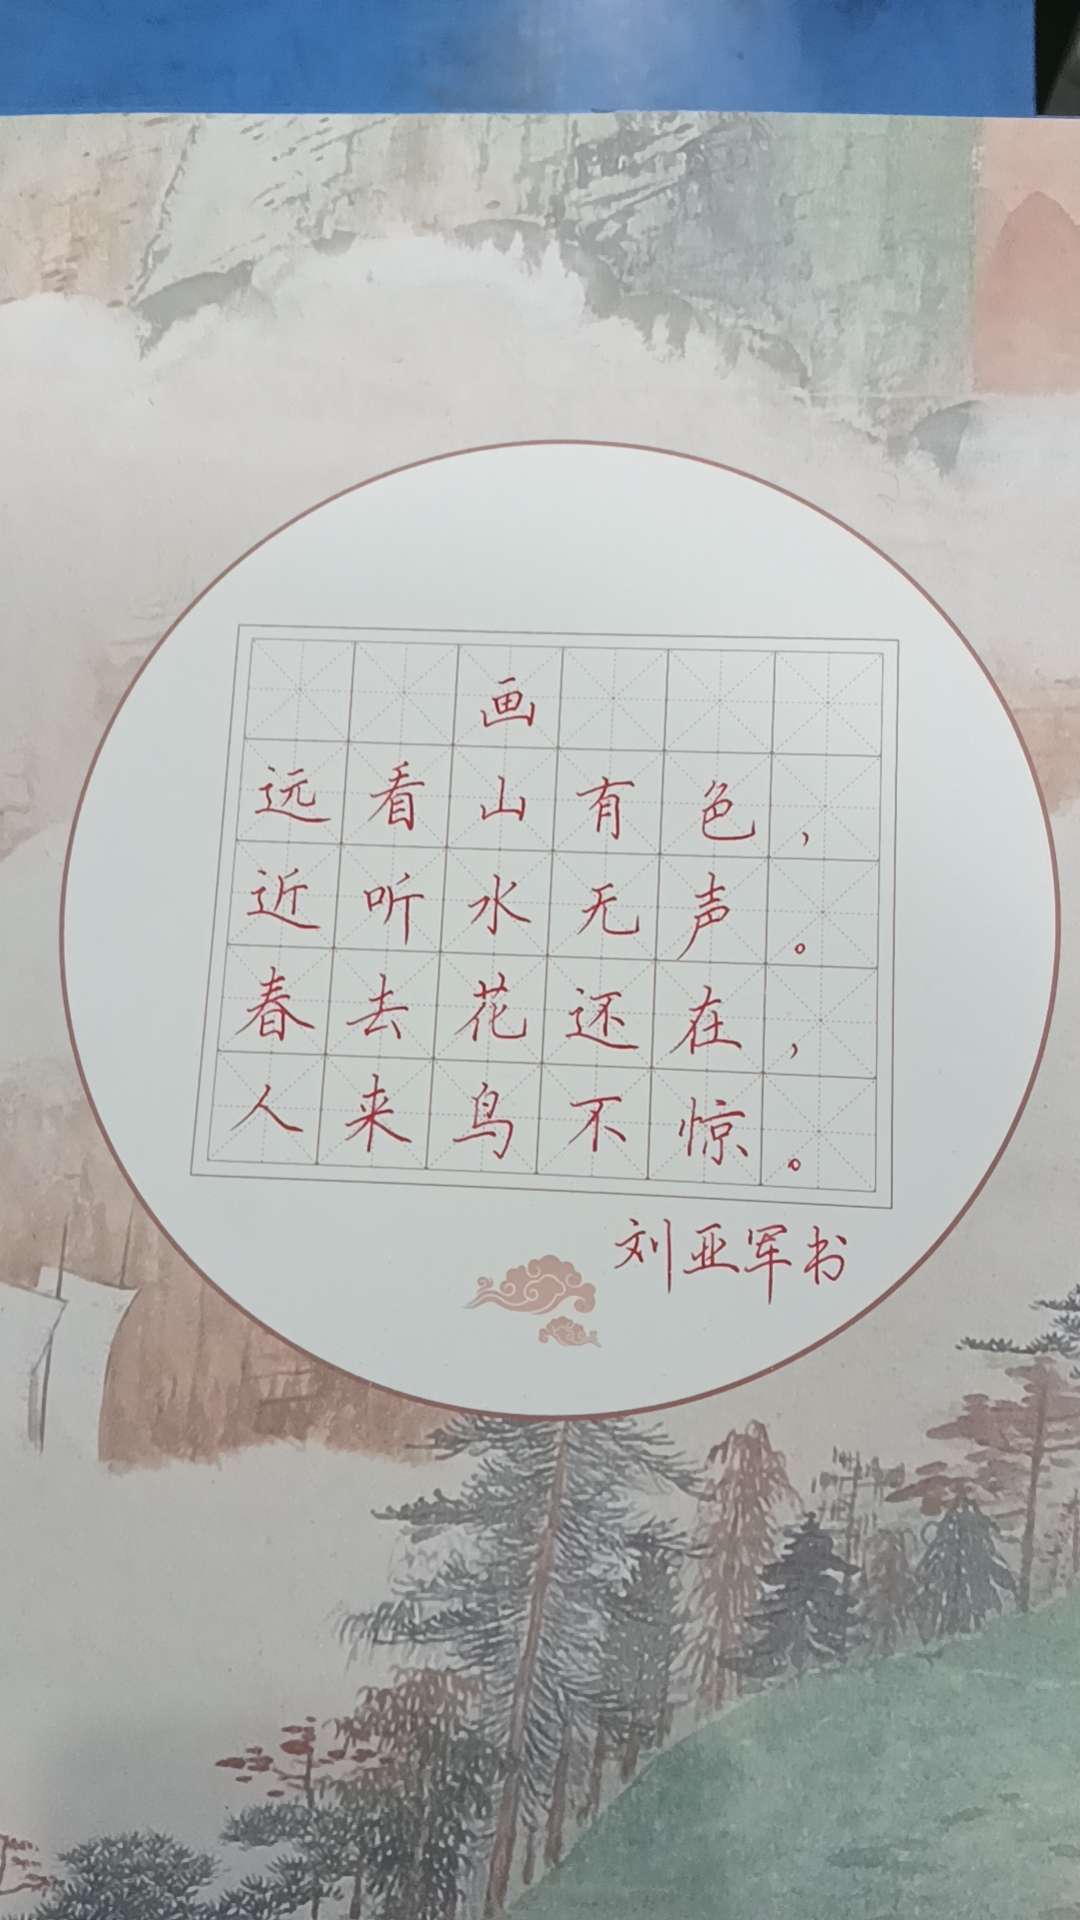 画
远看山有色，
近听水无声。
春去花还在，
人来鸟不惊。
刘亚军书